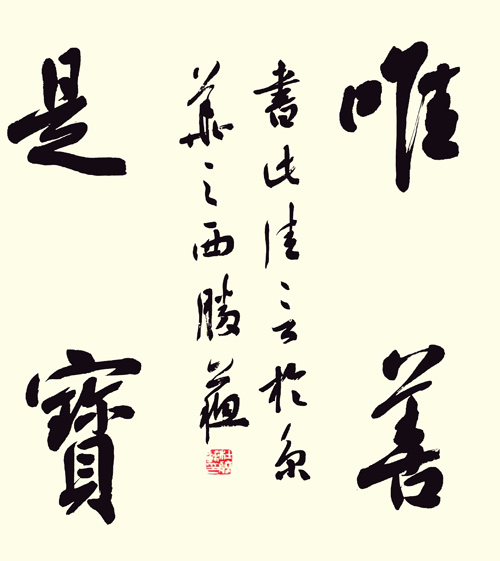 唯善
書此佳言於京
華之西勝
是寶